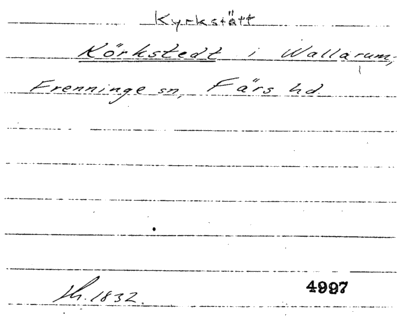 Kyrkstätt
Körkstedt i Wallarum,
Frenninge sn, Färs hd
1832.
4997